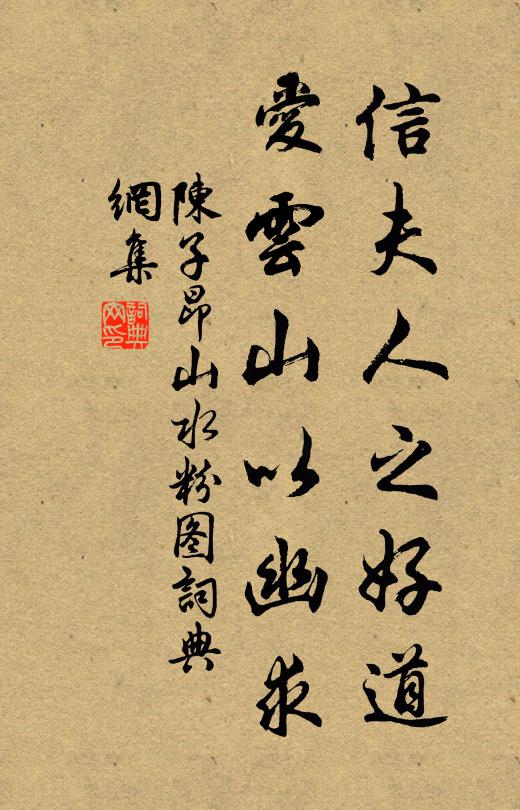 信夫人之好道
愛雲山以幽求
陳子昂山水粉图詞典
網集
詞典
网印